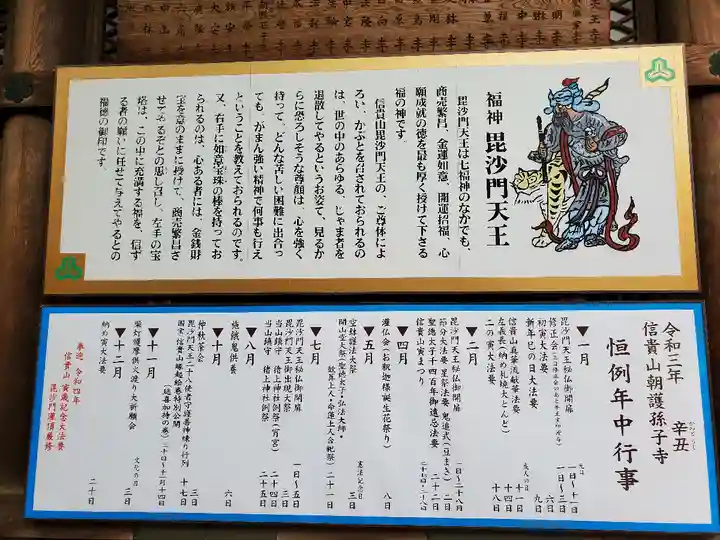 福神 毘沙門天王
毘沙門天王は七福神のなかでも、
商売繁昌、金運如意、開運招福、心
願成就の徳を最も厚く授けて下さる
福の神です。
信貴山毘沙門天王の、ご尊体によ
ろい、かぶとを召されておられるの
は、世の中のあらゆる、じゃま者を
退散してやるというお姿で、見るか
らに恐ろしそうな尊顔は、心を強く
持って、どんな苦しい困難に出合っ
ても、がまん強い精神で何事も行え
ということを教えておられるのです。
又、右手に如意宝珠の棒を持ってお
られるのは、心ある者には、金銭財
宝を意のままに授けて、商売繁昌さ
せてやるぞとの思し召し、左手の宝
塔は、この中に充満する福を、信ず
る者の願いに任せて与えてやるとの
福徳の御印です。
令和三年 辛丑
信貴山朝護孫子寺
恒例年中行事
▼一月
毘沙門天王秘仏御開扉 一日〜十一日
修正会 一日〜三日
初寅大法要 六日
新年巳の日大法要 九日
信貴山真華流献華法要 十一日
左義長(納め札焼大とんど) 十四日
二の寅大法要 十八日
▼二月
毘沙門天王秘仏御開扉 一日〜二十八日
節分大法要 星祭法要 鬼追式(豆まき) 二日
聖徳太子千四百年御遠忌法要 二十二日
信貴山寅まつり 二十七・二十八日
▼四月
灌仏会(お釈迦様誕生花祭り) 八日
▼五月
空鉢護法大祭 憲法記念日 三日
開山堂大祭(聖徳太子・弘法大師・
歓算上人・命蓮上人合祀祭)
▼七月
毘沙門天王秘仏御開扉 一日〜五日
毘沙門天王御出現大祭 三日
当山鎮守 猪上神社例祭(宵宮) 二十四日
当山鎮守 猪上神社例祭 二十五日
▼八月
施餓鬼供養 六日
▼十月
仲秋茶会 三日
毘沙門天王二十八使者守護善神練り行列 十七日
国宝 信貴山縁起絵巻特別公開
(延喜加持の巻) 三十日〜十一月十四日
▼十一月
柴灯護摩供火渡り大祈願会 文化の日 三日
▼十二月
納め寅大法要 二十日
奉迎 令和四年
信貴山 寅歳記念大法要
毘沙門灌頂厳修